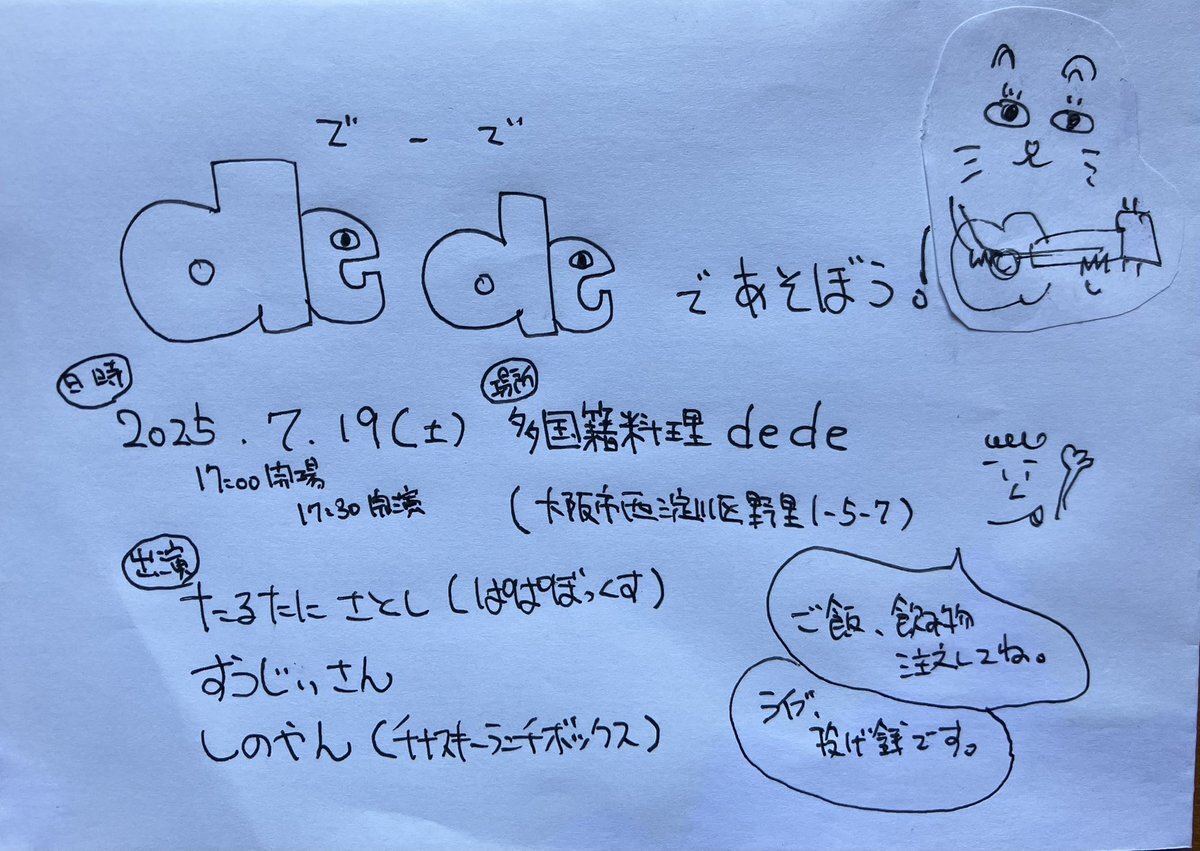 でーで
dede であそぼう!
日時
2025.7.19(土)
17:00開場
17:30開演
場所
多国籍料理dede
(大阪市西淀川区野里1-5-7)
出演
たるたに さとし(ぱぱぼっくす)
すうじぃさん
しのやん(チャスキーランチボックス)
ご飯、飲み物
注文してね。
ライブ、
投げ銭です。